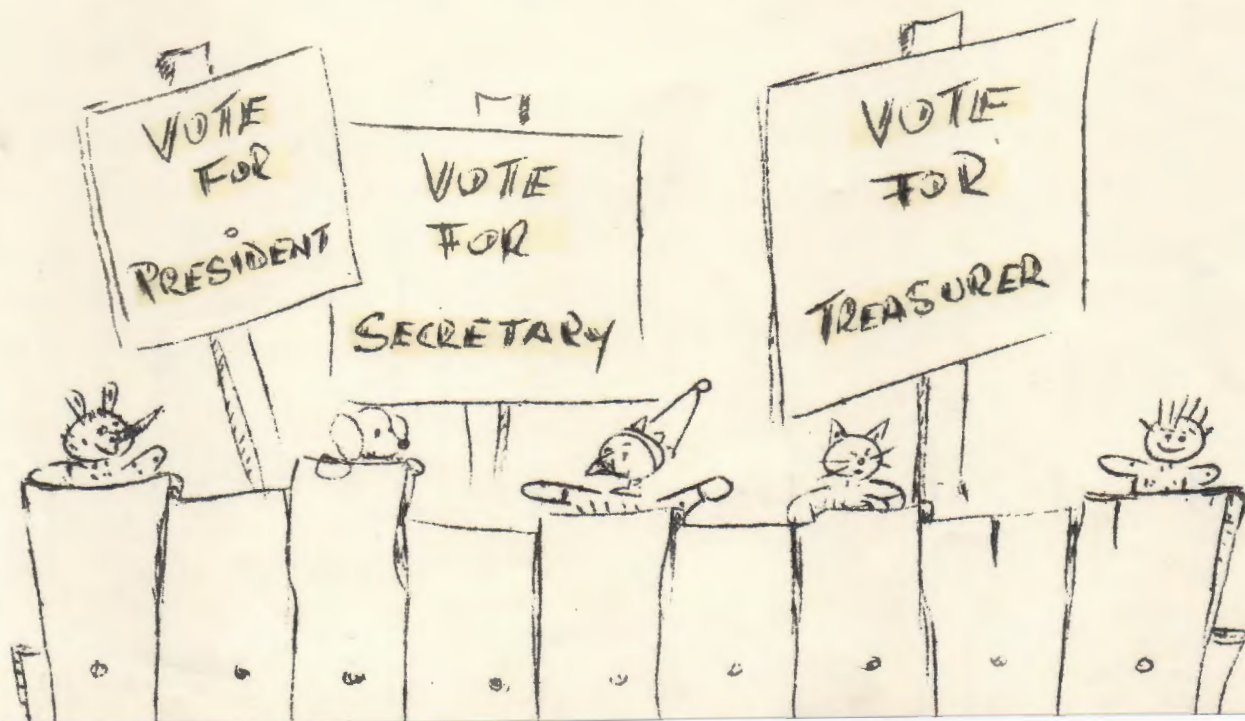 VOTE
FOR
PRESIDENT
VOTE
FOR
SECRETARY
VOTE
FOR
TREASURER